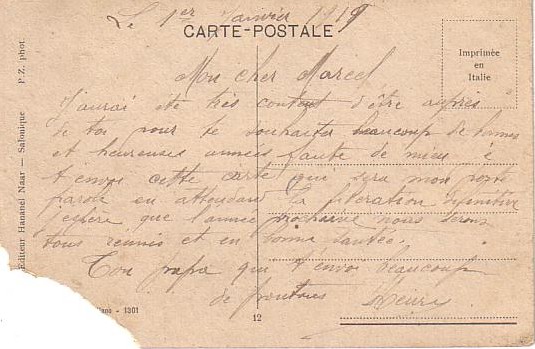 Le 1er Janvier 1919
CARTE-POSTALE
Imprimée
en
Italie
Mon cher Marcel
J'aurai été très content d'être auprès
de toi pour te souhaiter beaucoup de bonnes
et heureuses années faute de mieu
t'envoi cette carte qui sera mon
parole en attendant la libération définitive
J'espère que l'année prochaine nous serons
tous reunis et en bonne santée.
Ton papa qui t'envoi beaucoup
de Henri
Editeur Hananel Naar — Salonique P. Z. phot.
ano - 1301
12